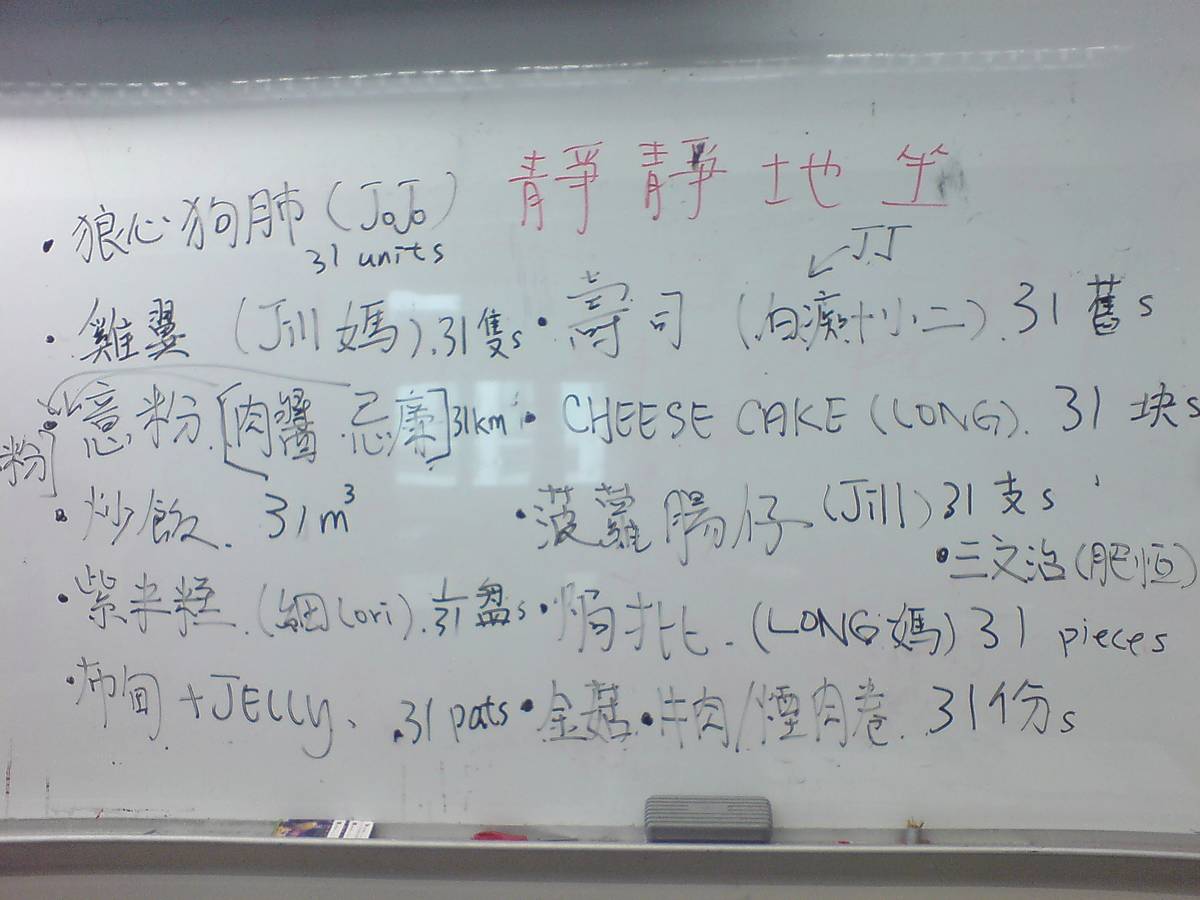 靜靜地坐
• 狼心狗肺 (JoJo)
31 units
JJ
• 雞翼 (Jill 媽). 31隻s
• 壽司 (白痴十小二). 31 舊s
• 意粉. [肉醬 忌廉] 31km
粉
• CHEESE CAKE (LONG). 31 块s
• 炒飯. 31m³
• 菠蘿腸仔 (Jill) 31 支s
• 三文治 (肥恒)
• 紫米糕. (細Lori). 1/31 盤s
• 焗批. (LONG 媽) 31 pieces
• 布甸 + JELLY、 .31 pats
• 金菇 • 牛肉/煙肉卷. 31份s